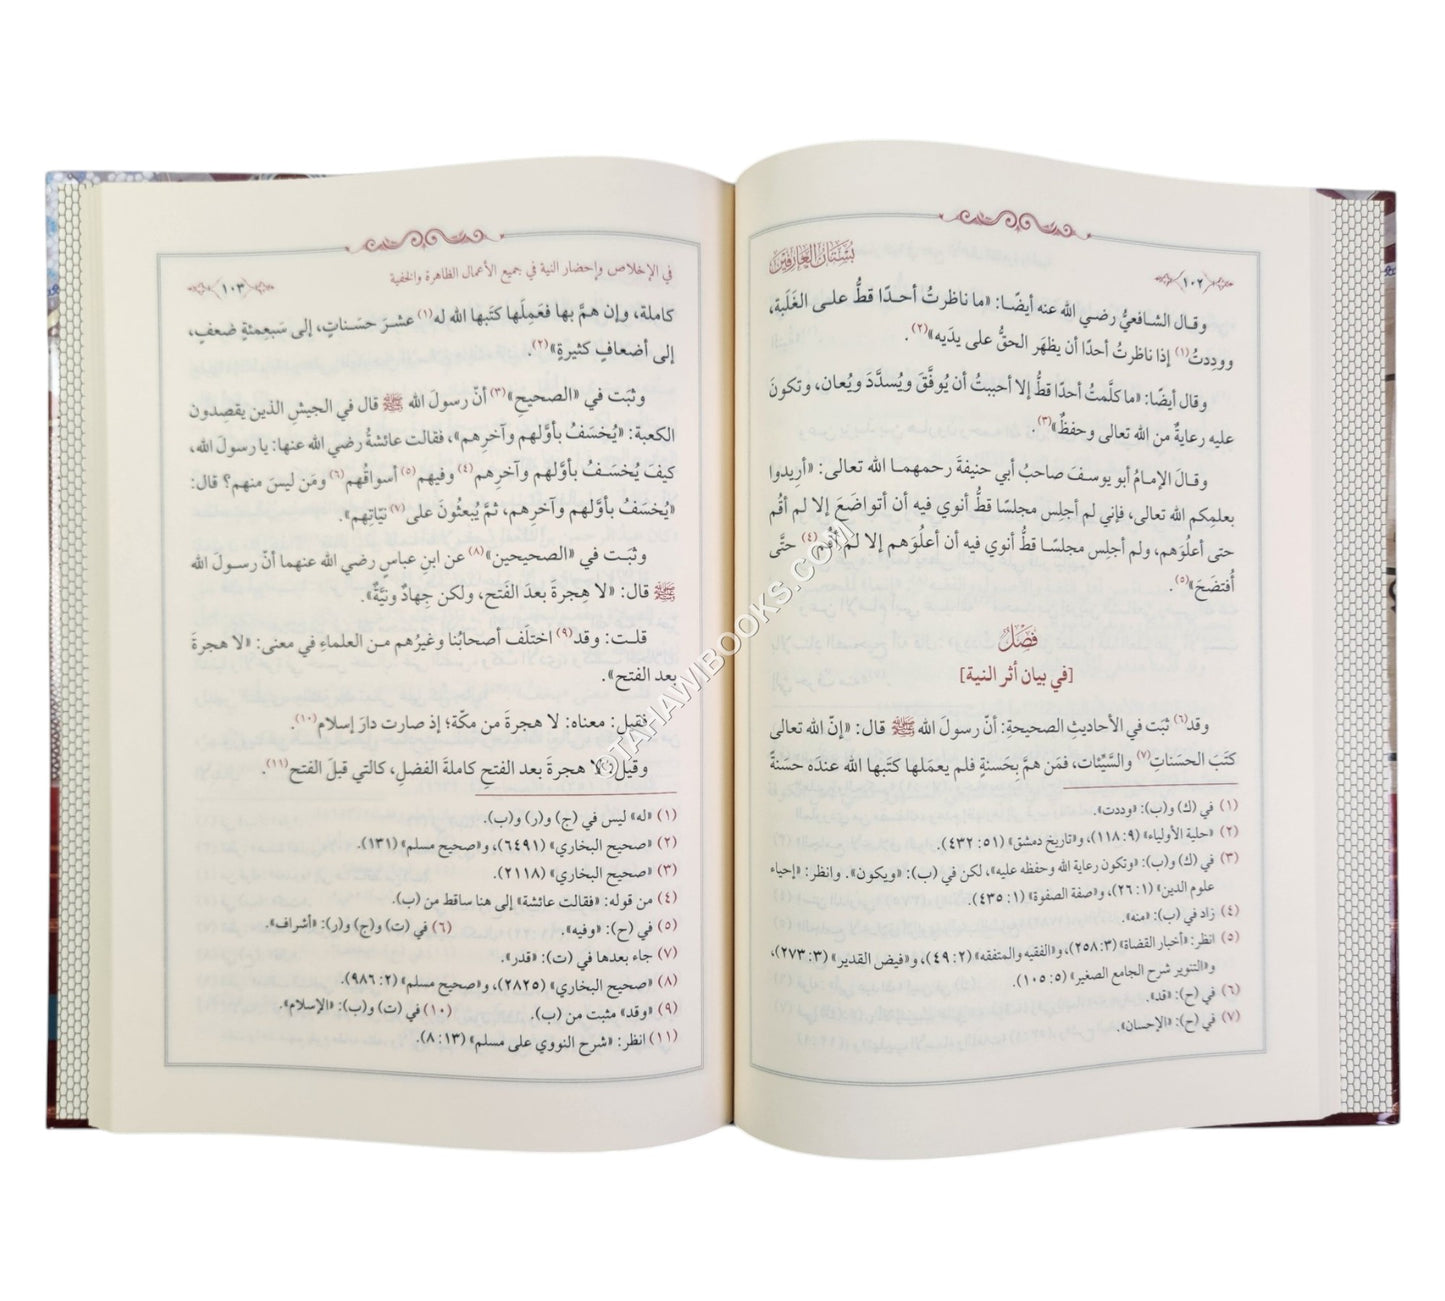 بستان العارفين
١٠٢
وقال الشافعيُّ رضي الله عنه أيضًا: «ما ناظرتُ أحدًا قطُّ على الغَلَبة،
ووددتُ(١) إذا ناظرتُ أحدًا أن يظهَر الحقُّ على يدَيه»(٢).
وقال أيضًا: «ما كلَّمتُ أحدًا قطُّ إلا أحببتُ أن يُوفَّقَ ويُسدَّدَ ويُعان، وتكونَ
عليه رعايةٌ من الله تعالى وحفظٌ»(٣).
وقالَ الإمامُ أبو يوسفَ صاحبُ أبي حنيفةَ رحمهما الله تعالى: «أريدوا
بعلمِكم الله تعالى، فإني لم أجلِس مجلسًا قطُّ أنوي فيه أن أتواضَعَ إلا لم أقُم
حتى أعلُوَهم، ولم أجلِس مجلسًا قطُّ أنوي فيه أن أعلُوَهم إلا لم أقُم(٤) حتَّى
أُفتضَحَ»(٥).
فصل
[في بيان أثر النية]
وقد(٦) ثبَت في الأحاديثِ الصحيحةِ: أنّ رسولَ الله ﷺ قال: «إنّ الله تعالى
كتَبَ الحسَناتِ(٧) والسَّيِّئات، فمَن همَّ بِحَسنةٍ فلم يعمَلها كتَبها الله عندَه حسَنةً
(١) في (ك) و(ب): «وددت».
(٢) «حلية الأولياء» (٩: ١١٨)، و«تاريخ دمشق» (٥١: ٤٣٢).
(٣) في (ك) و(ب): «وتكون رعاية الله وحفظه عليه»، لكن في (ب): «ويكون». وانظر: «إحياء
علوم الدين» (١: ٢٦)، و«صفة الصفوة» (١: ٤٣٥).
(٤) زاد في (ب): «منه».
(٥) انظر: «أخبار القضاة» (٣: ٢٥٨)، و«الفقيه والمتفقه» (٢: ٤٩)، و«فيض القدير» (٣: ٢٧٣)،
و«التنوير شرح الجامع الصغير» (٥: ١٠٥).
(٦) في (ح): «قد».
(٧) في (ح): «الإحسان».
في الإخلاص وإحضار النية في جميع الأعمال الظاهرة والخفية
١٠٣
كاملة، وإن همَّ بها فعَمِلَها كتَبها الله له(١) عشرَ حسَناتٍ، إلى سَبعِمئةِ ضعفٍ،
إلى أضعافٍ كثيرةٍ»(٢).
وثبَت في «الصحيحِ»(٣) أنّ رسولَ الله ﷺ قال في الجيشِ الذين يقصِدون
الكعبة: «يُخسَفُ بأوَّلهم وآخرِهم»، فقالت عائشةُ رضي الله عنها: يا رسولَ الله،
كيفَ يُخسَفُ بأوَّلهم وآخرِهم(٤) وفيهم(٥) أسواقُهم(٦) ومَن ليسَ منهم؟ قال:
«يُخسَفُ بأوَّلهم وآخرِهم، ثمَّ يُبعثُونَ على(٧) نيّاتِهم».
وثبَت في «الصحيحين»(٨) عن ابن عباسٍ رضي الله عنهما أنّ رسولَ الله
ﷺ قال: «لا هِجرةَ بعدَ الفَتح، ولكن جِهادٌ ونيَّةٌ».
قلت: وقد(٩) اختلَف أصحابُنا وغيرُهم من العلماءِ في معنى: «لا هجرةَ
بعد الفتح».
فقيل: معناه: لا هجرةَ من مكّة؛ إذ صارت دارَ إسلام(١٠).
وقيل: لا هجرةَ بعد الفتحِ كاملةَ الفضلِ، كالتي قبلَ الفتح(١١).
(١) «له» ليس في (ج) و(ر) و(ب).
(٢) «صحيح البخاري» (٦٤٩١)، و«صحيح مسلم» (١٣١).
(٣) «صحيح البخاري» (٢١١٨).
(٤) من قوله: «فقالت عائشة» إلى هنا ساقط من (ب).
(٥) في (ح): «وفيه». (٦) في (ت) و(ج) و(ر): «أشراف».
(٧) جاء بعدها في (ت): «قدر».
(٨) «صحيح البخاري» (٢٨٢٥)، و«صحيح مسلم» (٢: ٩٨٦).
(٩) «وقد» مثبت من (ب). (١٠) في (ت) و(ب): «الإسلام».
(١١) انظر: «شرح النووي على مسلم» (١٣: ٨).
©TAHAWIBOOKS.COM